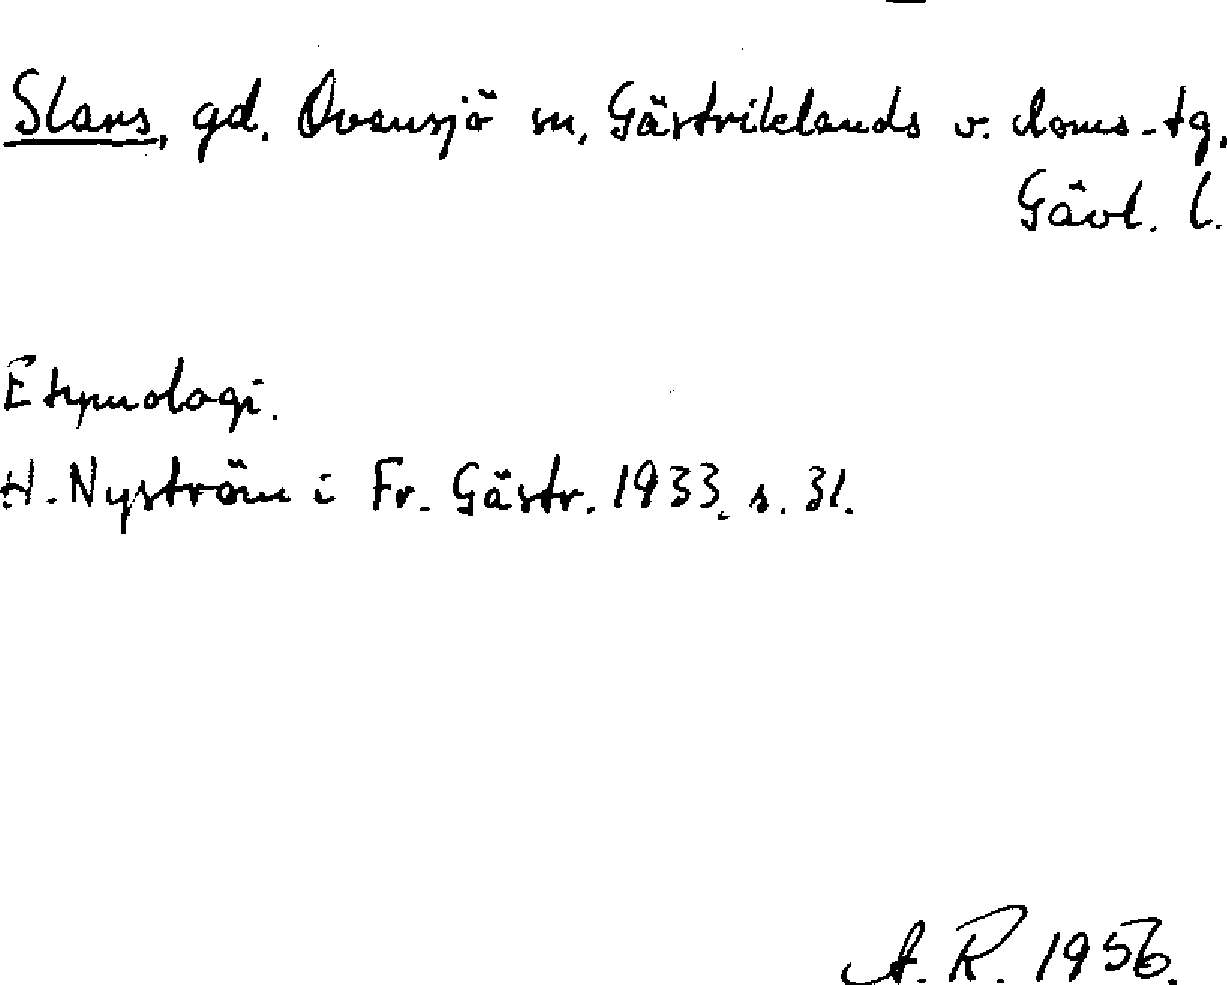 Slars, gd. Ovansjö sn, Gästriklands v. doms-tg.
Gävl. l.
Etymologi.
H. Nyström i Fr. Gästr. 1933, s. 31.
A. R. 1956.